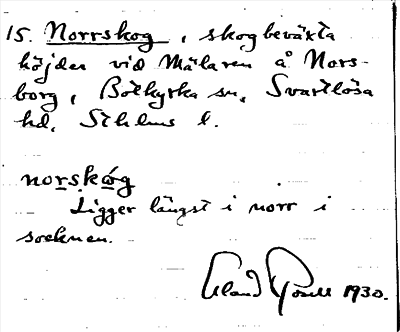 15. Norrskog, skogbeväxta
höjder vid Mälaren å Nors-
borg, Botkyrka sn, Svartlösa
hd, Sthlms l.
norskóg
Ligger längst i norr i
socknen.
Erland 1930.